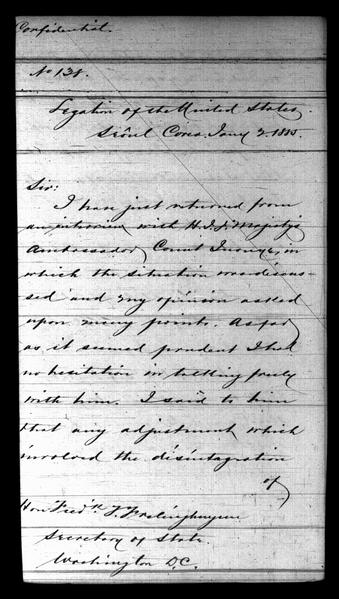 Confidential.
No 128.
Legation of the United States.
Seoul Corea, Jany 2. 1885.
Sir:
I have just returned from
an interview with H.I.J. Majesty's
Ambassador, Count Inouye, in
which the situation was discus-
sed and my opinion asked
upon many points. As far
as it seemed prudent I had
no hesitation in talking freely
with him. I said to him
that any adjustment which
involved the disintegration
of
Hon Fredk. T. Frelinghuysen
Secretary of State
Washington D.C.